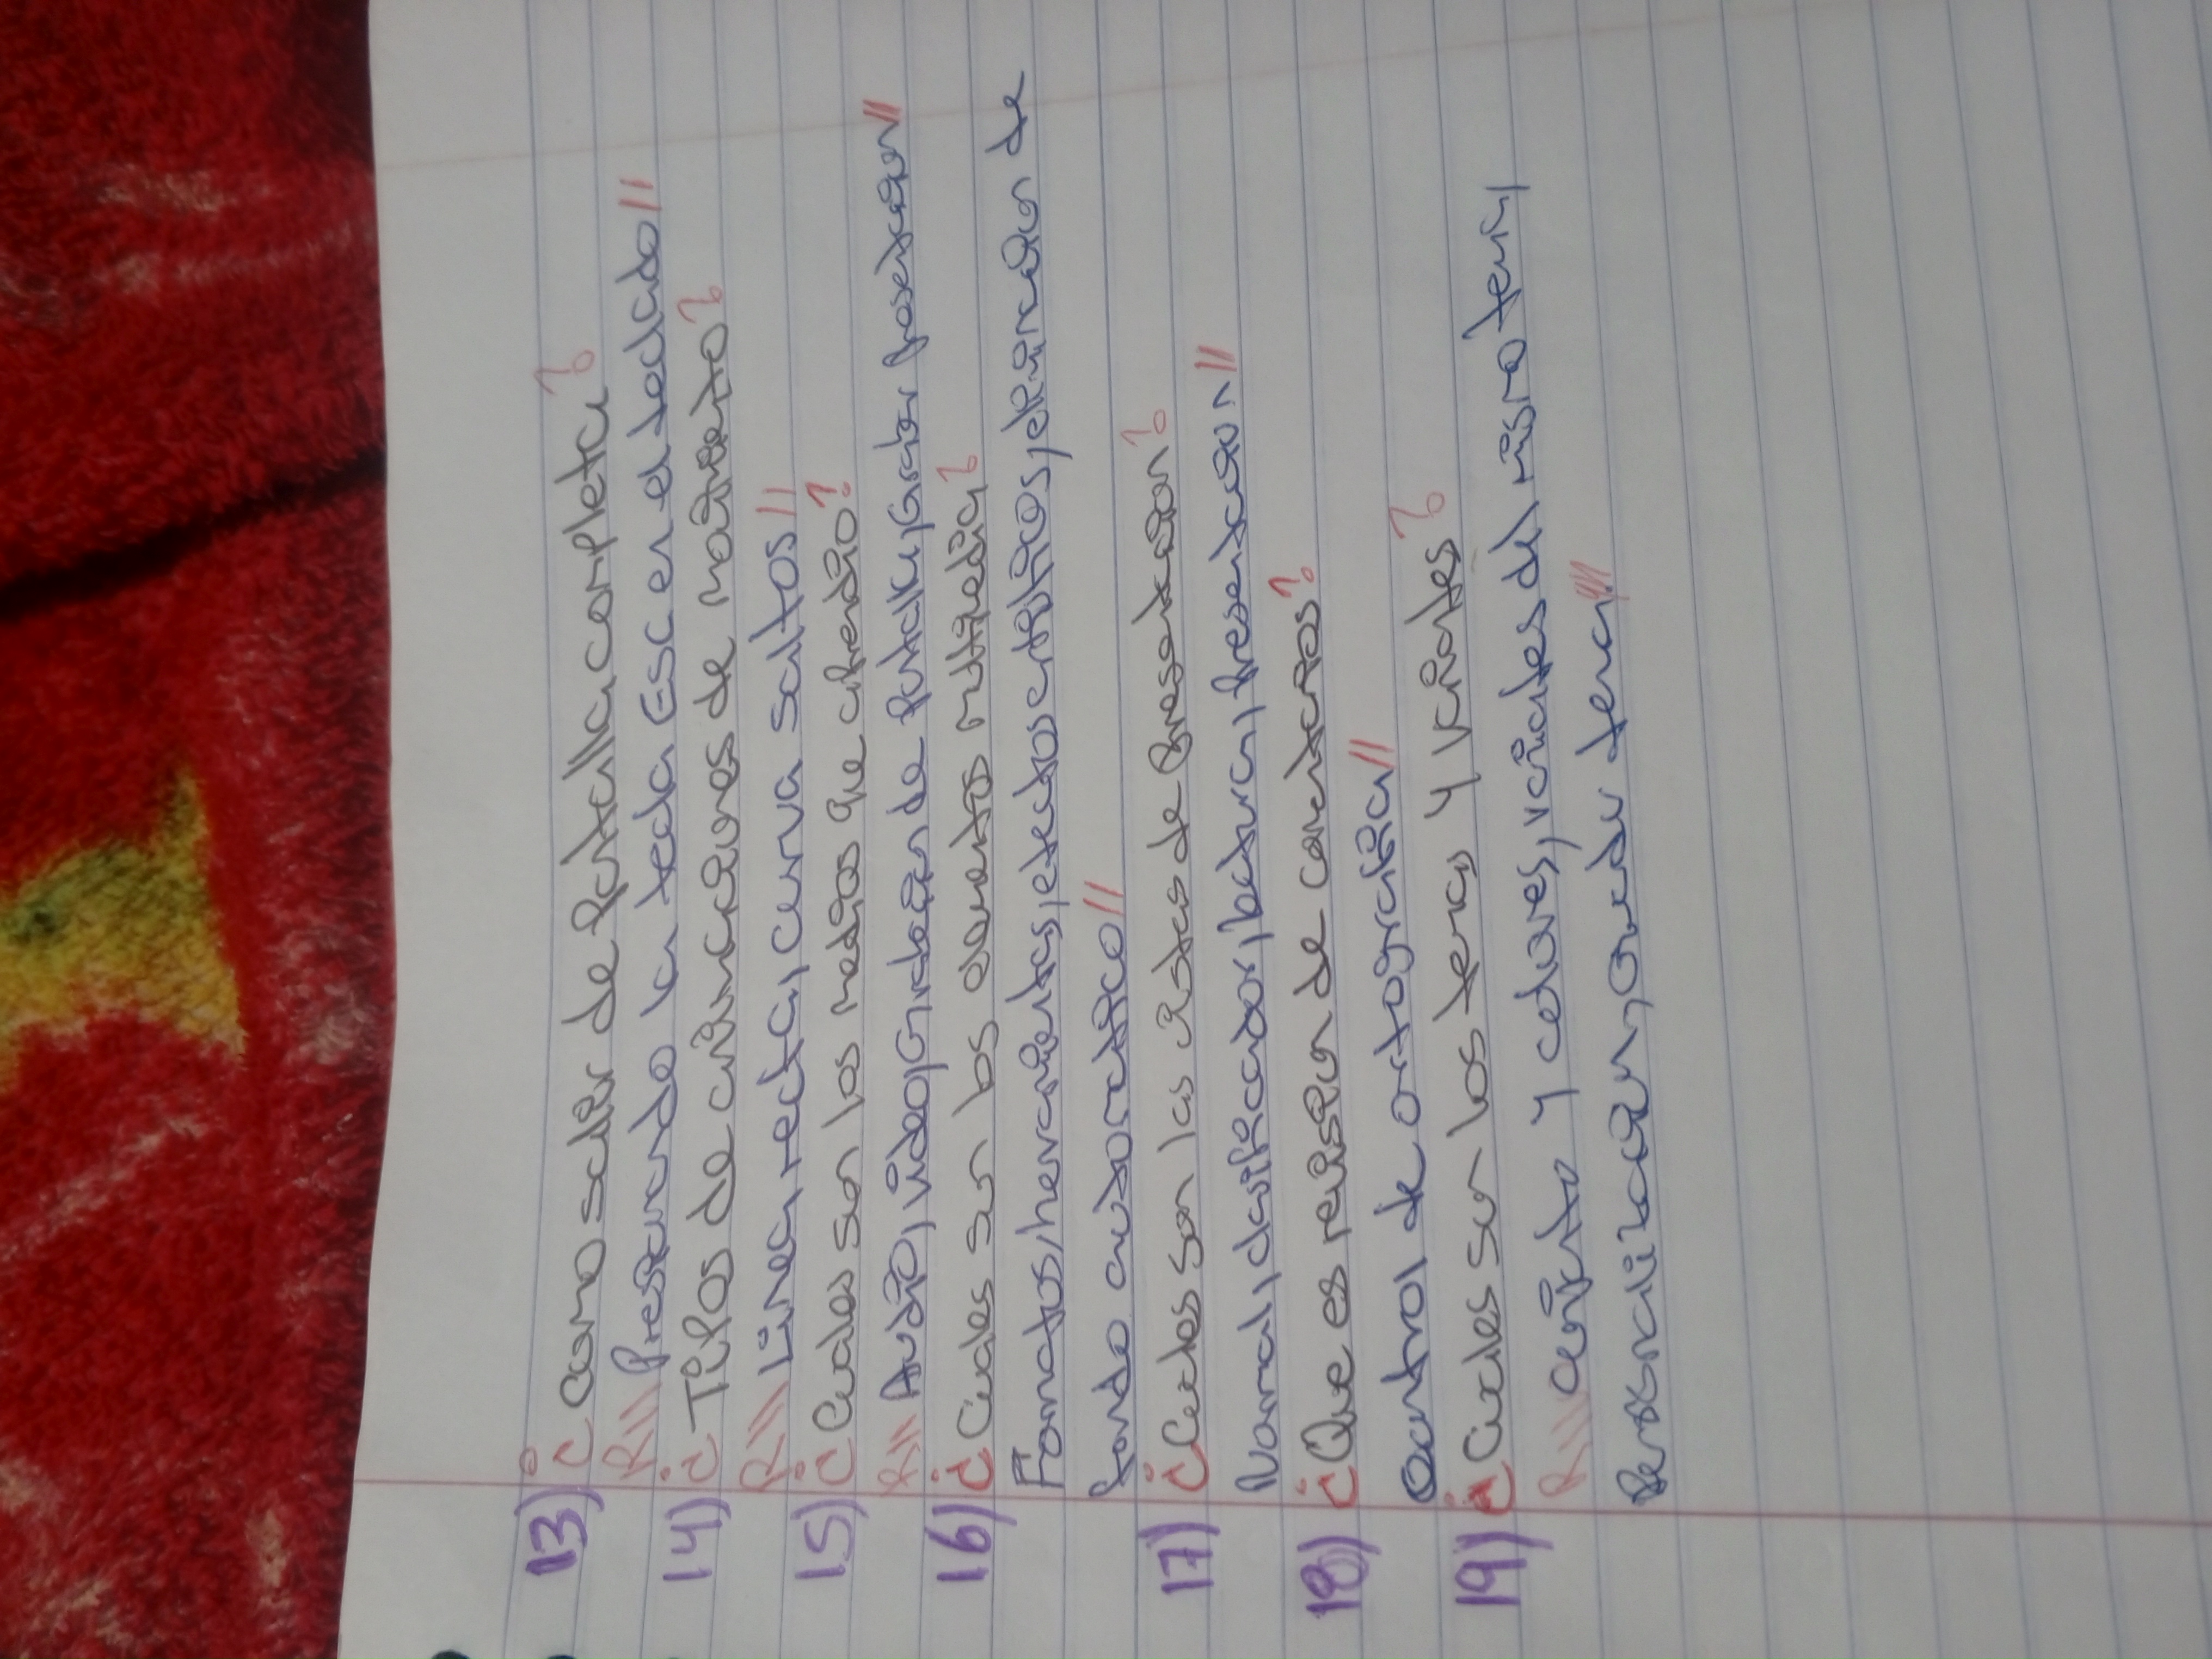 13) ¿como salir de Pantalla completa?
R// Presionando la tecla Esc en el teclado//
14) ¿Tipos de animaciones de movimiento?
R// Linea recta, curva saltos//
15) ¿Cuales son los medios que aprendio?
R// Audio, video, Grabación de Pantalla, Grabar presentacion//
16) ¿Cuales son los elementos multimedia?
Formatos, herramientas, efectos artisticos, eliminacion de
fondo automatico//
17) ¿Cuales son las vistas de Presentacion?
Normal, clasificador, lectura, presentacion//
18) ¿Que es revision de comentarios?
Control de ortografia//
19) ¿Cuales son los temas y variantes?
R// conjunto y colores, variantes del mismo tema,
Personalizacion, guardar tema//